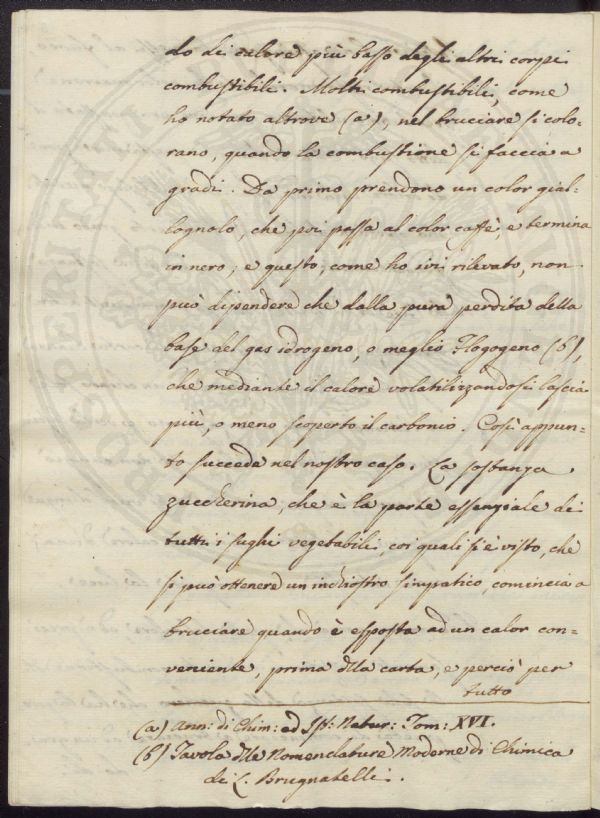 do di calore più basso degli altri corpi
combustibili. Molti combustibili, come
ho notato altrove (a), nel bruciare si colo=
rano, quando la combustione si faccia a
gradi. Da primo prendono un color gial=
lognolo, che poi passa al color caffè, e termina
in nero; e questo, come ho ivi rilevato, non
può dipendere che dalla pura perdita della
base del gas idrogeno, o meglio Flogogeno (b),
che mediante il calore volatilizzandosi lascia
più, o meno scoperto il carbonio. Così appun=
to succede nel nostro caso. La sostanza
zuccherina, che è la parte essenziale di
tutti i sughi vegetabili, coi quali si è visto, che
si può ottenere un inchiostro simpatico, comincia a
bruciare quando è esposta ad un calor con=
veniente, prima dlla carta, e perciò per
tutto
(a) Ann: di Chim: ed Ist: Natur: Tom: XVI.
(b) Tavola dlle Nomenclature Moderne di Chimica
di L. Brugnatelli.
PROSPERITATI